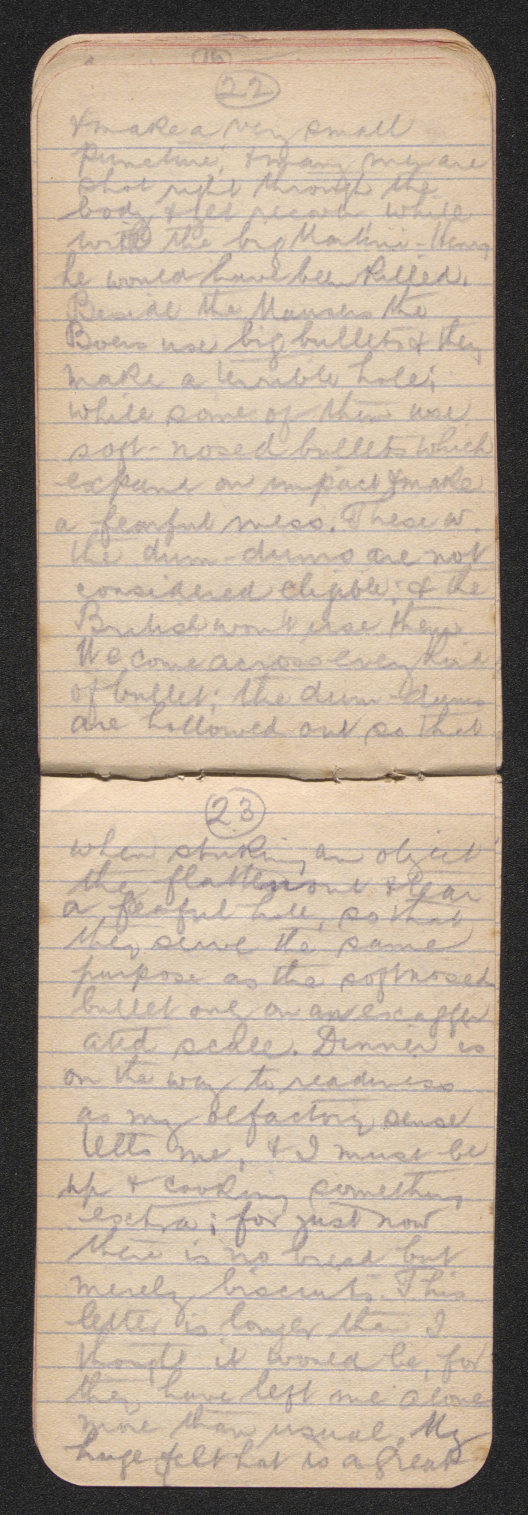 22
& make a very small
puncture, & many men are
shot right through the
body & yet recover while
with the big Martini-Henry
he would have been killed.
Beside the Mausers the
Boers use big bullets & they
make a terrible hole;
while some of them use
soft-nosed bullets which
expand on impact & make
a fearful mess. These or
the dum-dums are not
considered eligible; & the
British won't use them
We come across every kind
of bullet; the dum-dums
are hollowed out so that
23
when striking an object
they flatten out & tear
a fearful hole, so that
they serve the same
purpose as the softnosed
bullet only on an exagger
ated scale. Dinner is
on the way to readiness
as my olfactory sense
tells me, & I must be
up & cooking something
extra; for just now
there is no bread but
merely biscuits. This
letter is longer than I
thought it would be, for
they have left me alone
more than usual. My
huge felt hat is a great